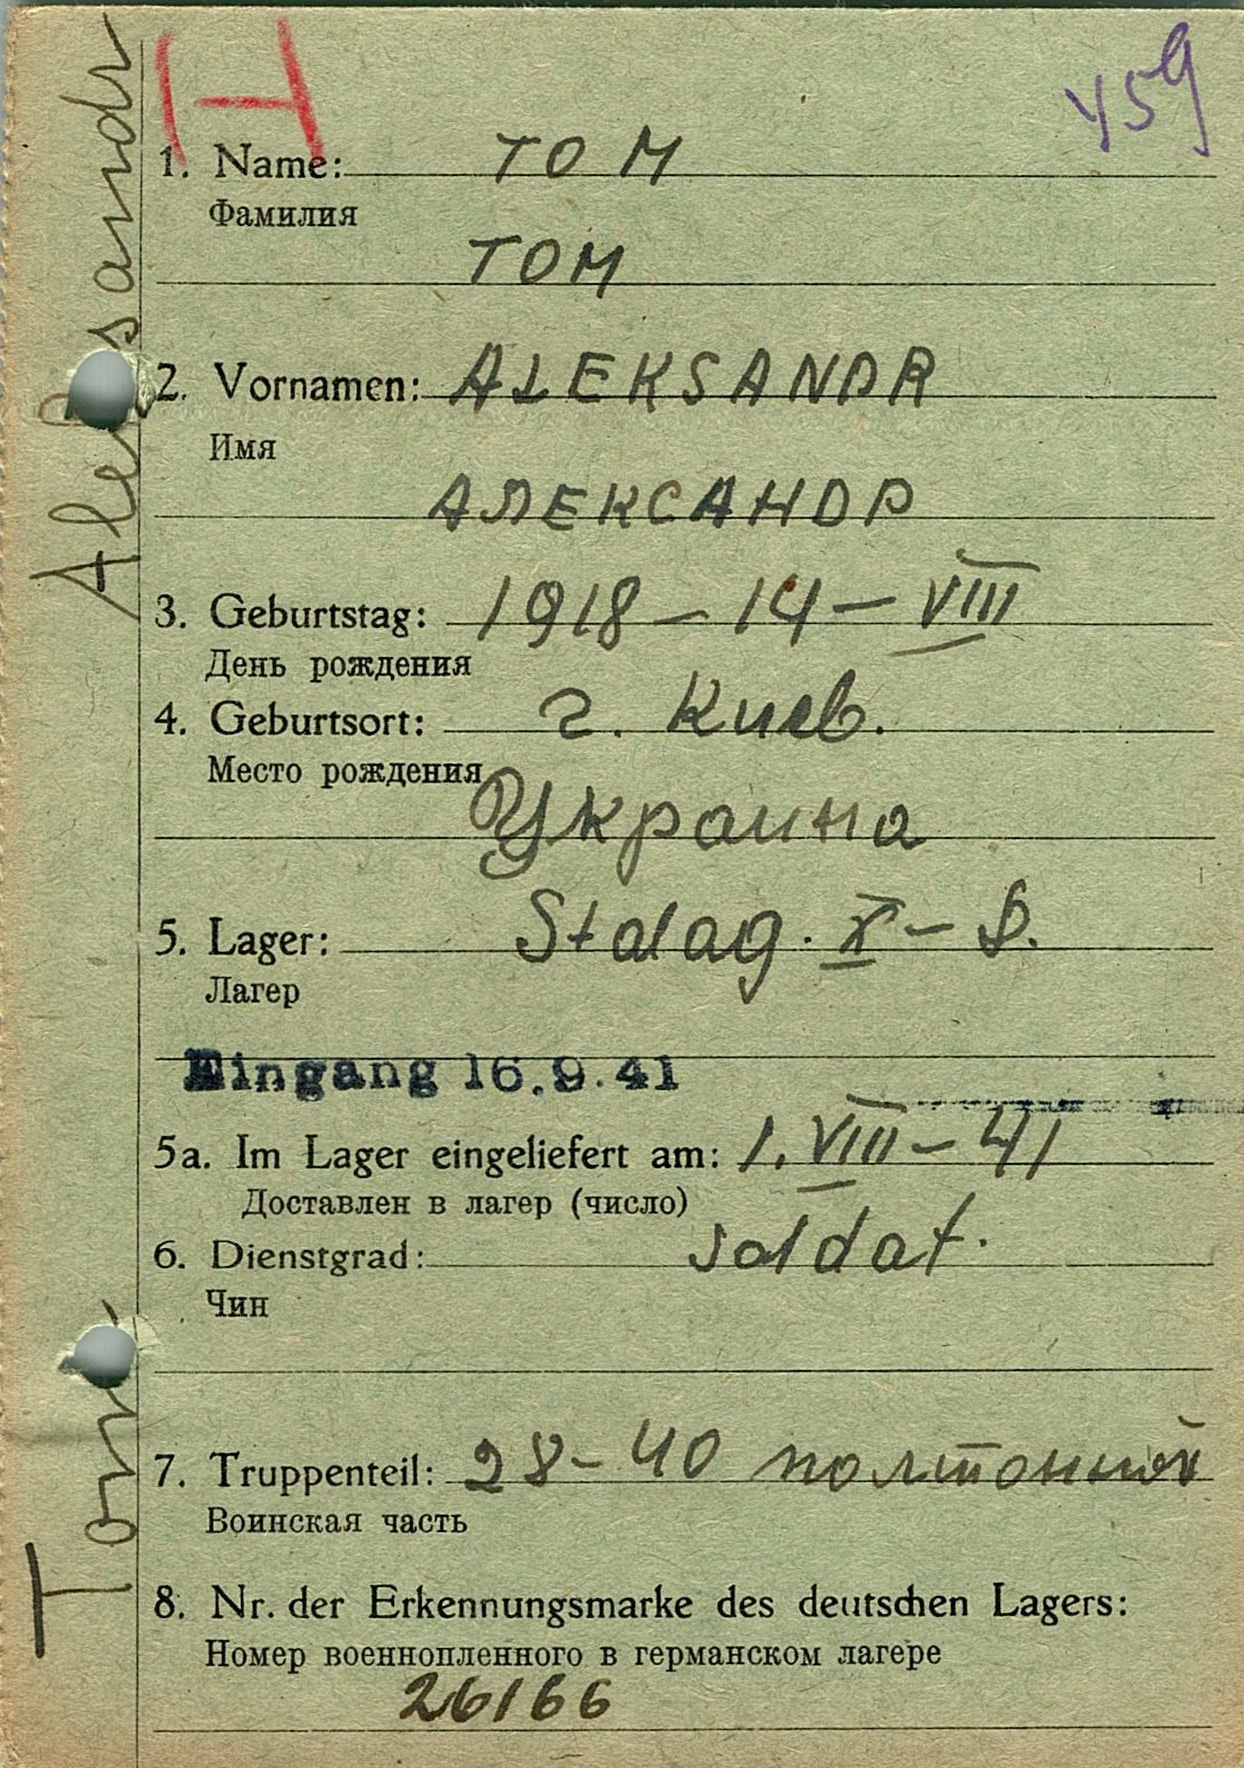 H
459
1. Name: TOM
Фамилия
ТОМ
2. Vornamen: ALEKSANDR
Имя
АЛЕКСАНДР
3. Geburtstag: 1918 – 14 – VIII
День рождения
4. Geburtsort: г. Киев.
Место рождения
Украина
5. Lager: Stalag. X – D.
Лагер
Eingang 16.9.41
5a. Im Lager eingeliefert am: 1. VIII – 41
Доставлен в лагер (число)
6. Dienstgrad: soldat.
Чин
7. Truppenteil: 28 – 40
Воинская часть
8. Nr. der Erkennungsmarke des deutschen Lagers:
Номер военнопленного в германском лагере
26166
Tom, Aleksandr